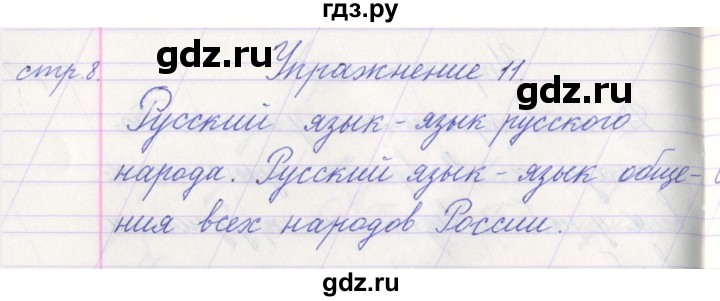 гдз.ру
gdz.ru gdz.ru
стр.8. Упражнение 11.
gdz.ru
Русский язык - язык русского
народа. Русский язык - язык обще-
gdz.ru gdz.ru
ния всех народов России.
gdz.ru